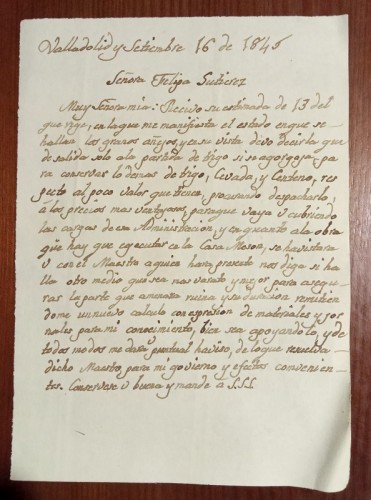 Valladolid y Setiembre 16 de 1845
Señora Felipa Gutierez
Muy Señora mia: Recivo su estimada de 13 del
que rije, en la que me manifiesta el estado en que se
hallan los granos añejos, y en su vista devo decirla que
de salida solo a la partida de trigo si se agorgoja pa
ra conservar lo demas de trigo, Cevada, y Centeno, res
pecto al poco valor que tiene, procurando despacharlo
á los precios mas ventajosos, para que vaya V cubriendo
las cargas de esa Administracion, y en quanto a la obra
que hay que egecutar en la Casa Meson, se havistara
V con el Maestro a quien hara presente nos diga si ha
lla otro medio que sea mas varato y mejor para asegu
rar la parte que amenaza ruina y su duracion remitien
dome un nuevo calculo con expresion de materiales y jor
nales para mi conocimiento, bien sea apoyandolo, y de
todos modos me dara puntual haviso, de lo que resuelva
dicho Maestro, para mi govierno y efectos convenien
tes. Conservese V buena y mande a S.S.S.